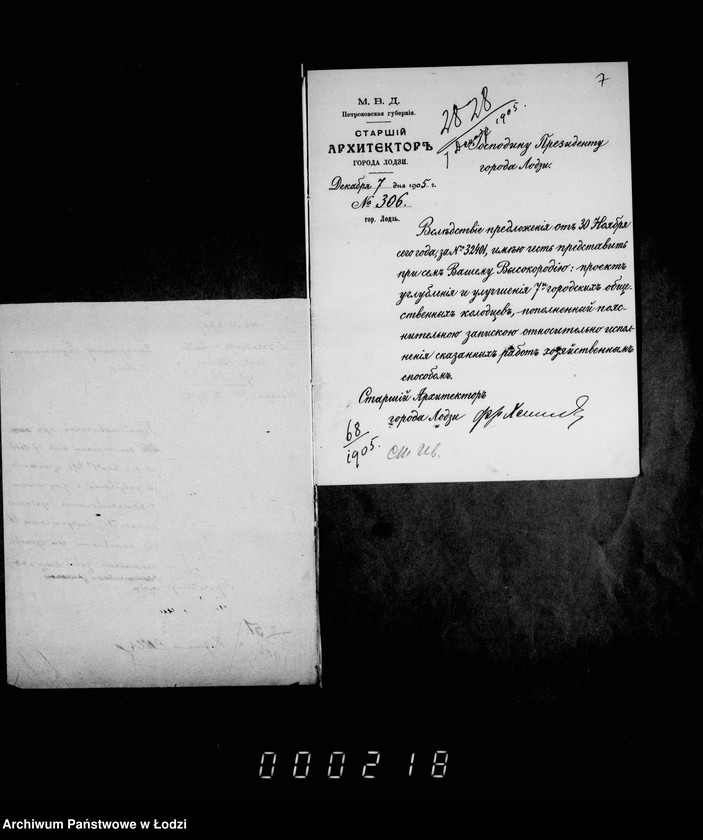 7
М. В. Д.
Петроковская губернія.
СТАРШІЙ
АРХИТЕКТОРЪ
ГОРОДА ЛОДЗИ.
Декабря 7 дня 1905 г.
№ 306.
гор. Лодзь.
2828
7 Декабр 1905.
Господину Президенту
города Лодзи.
Вслѣдствіе предложенія отъ 30 Ноября
сего года, за № 32401, имѣю честь представить
при семъ Вашему Высокородію: проектъ
углубленія и улучшенія 7ми городскихъ обще-
ственныхъ колодцевъ, пополненный пояс-
нительною запискою относительно испол-
ненія сказанныхъ работъ хозяйственнымъ
способомъ.
Старшій Архитекторъ
города Лодзи
68
1905.
000218
Archiwum Państwowe w Łodzi